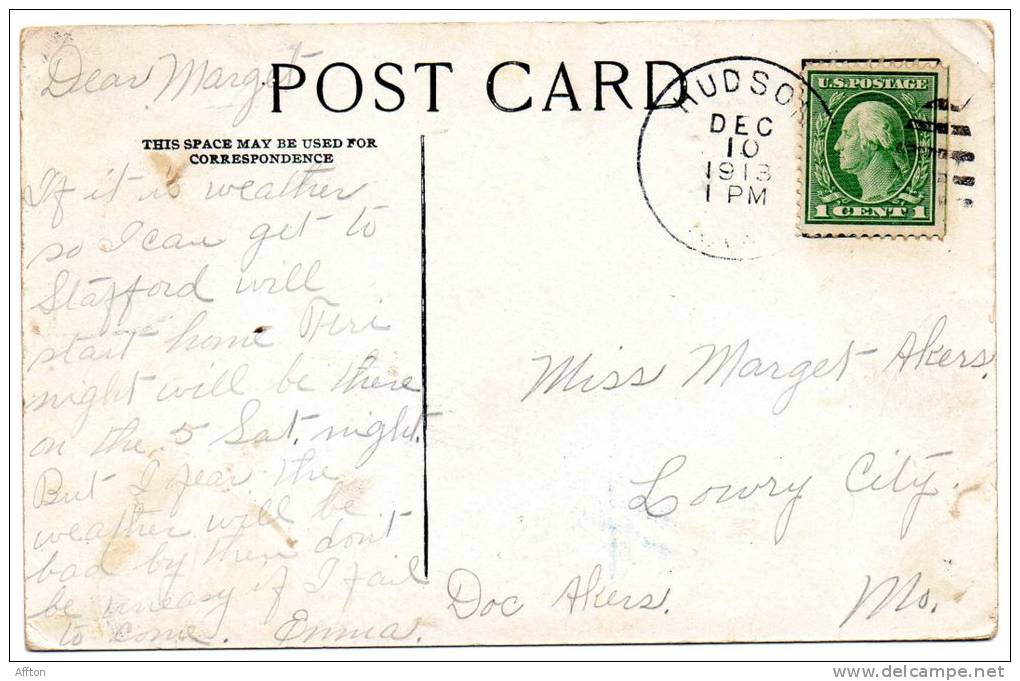 Dear Marget
POST CARD
THIS SPACE MAY BE USED FOR
CORRESPONDENCE
If it is weather
so I can get to
Stafford will
start home Fri
night will be there
on the 5 Sat. night.
But I fear the
weather will be
bad by then don't
be uneasy if I fail
to come. Emma.
HUDSON
DEC
10
1913
1 PM
U.S. POSTAGE
1 CENT 1
Miss Marget Akers.
Lowry City.
Doc Akers. Mo.
Affton
www.delcampe.net